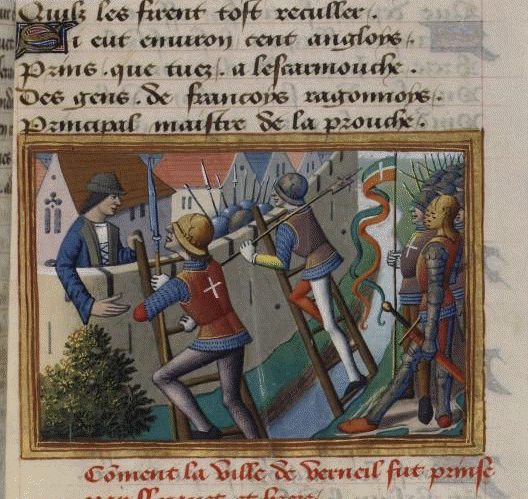 Quilz les firent tost reculler.
Si eut enuiron cent anglois.
Prins. que tuez. a lescarmouche.
Des gens. de francoys ragonnoys.
Principal maistre de la prouche.
Cõment la ville de verneil fut prinse